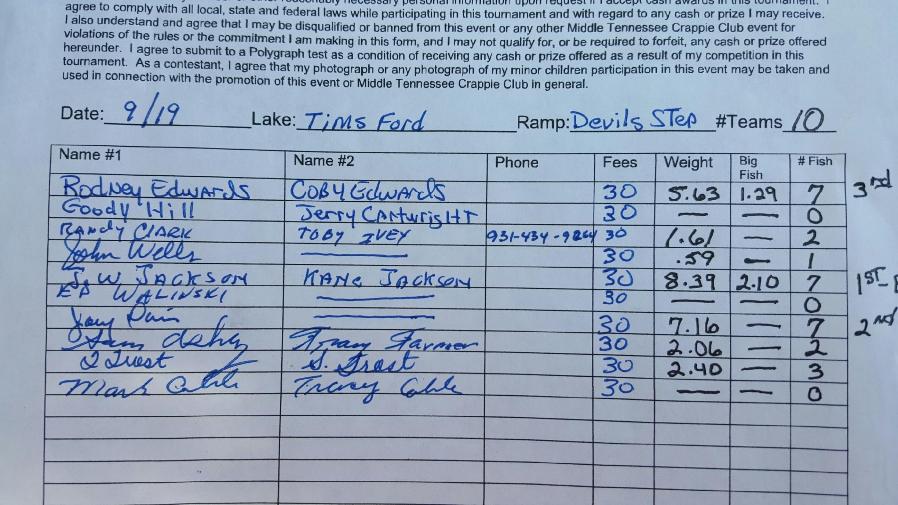 agree to comply with all local, state and federal laws while participating in this tournament and with regard to any cash or prize I may receive.
I also understand and agree that I may be disqualified or banned from this event or any other Middle Tennessee Crappie Club event for
violations of the rules or the commitment I am making in this form, and I may not qualify for, or be required to forfeit, any cash or prize offered
hereunder. I agree to submit to a Polygraph test as a condition of receiving any cash or prize offered as a result of my competition in this
tournament. As a contestant, I agree that my photograph or any photograph of my minor children participation in this event may be taken and
used in connection with the promotion of this event or Middle Tennessee Crappie Club in general.
Date: 9/19 Lake: Tims Ford Ramp: Devils Step #Teams 10
Name #1 Name #2 Phone Fees Weight Big Fish # Fish
Rodney Edwards COBY Edwards 30 5.63 1.29 7 3rd
Goody Hill Jerry Cartwright 30 — — 0
RANdy CLARK TOBY IVEY 931-434-9264 30 1.61 — 2
John Wells 30 .59 — 1
J.W JACKSON KANE JACKSON 30 8.39 2.10 7 1ST
ED WALINSKI 30 — — 0
30 7.16 — 7 2nd
Farmer 30 2.06 — 2
J Trest S. Trest 30 2.40 — 3
Mark Cable Tracey Cable 30 — — 0